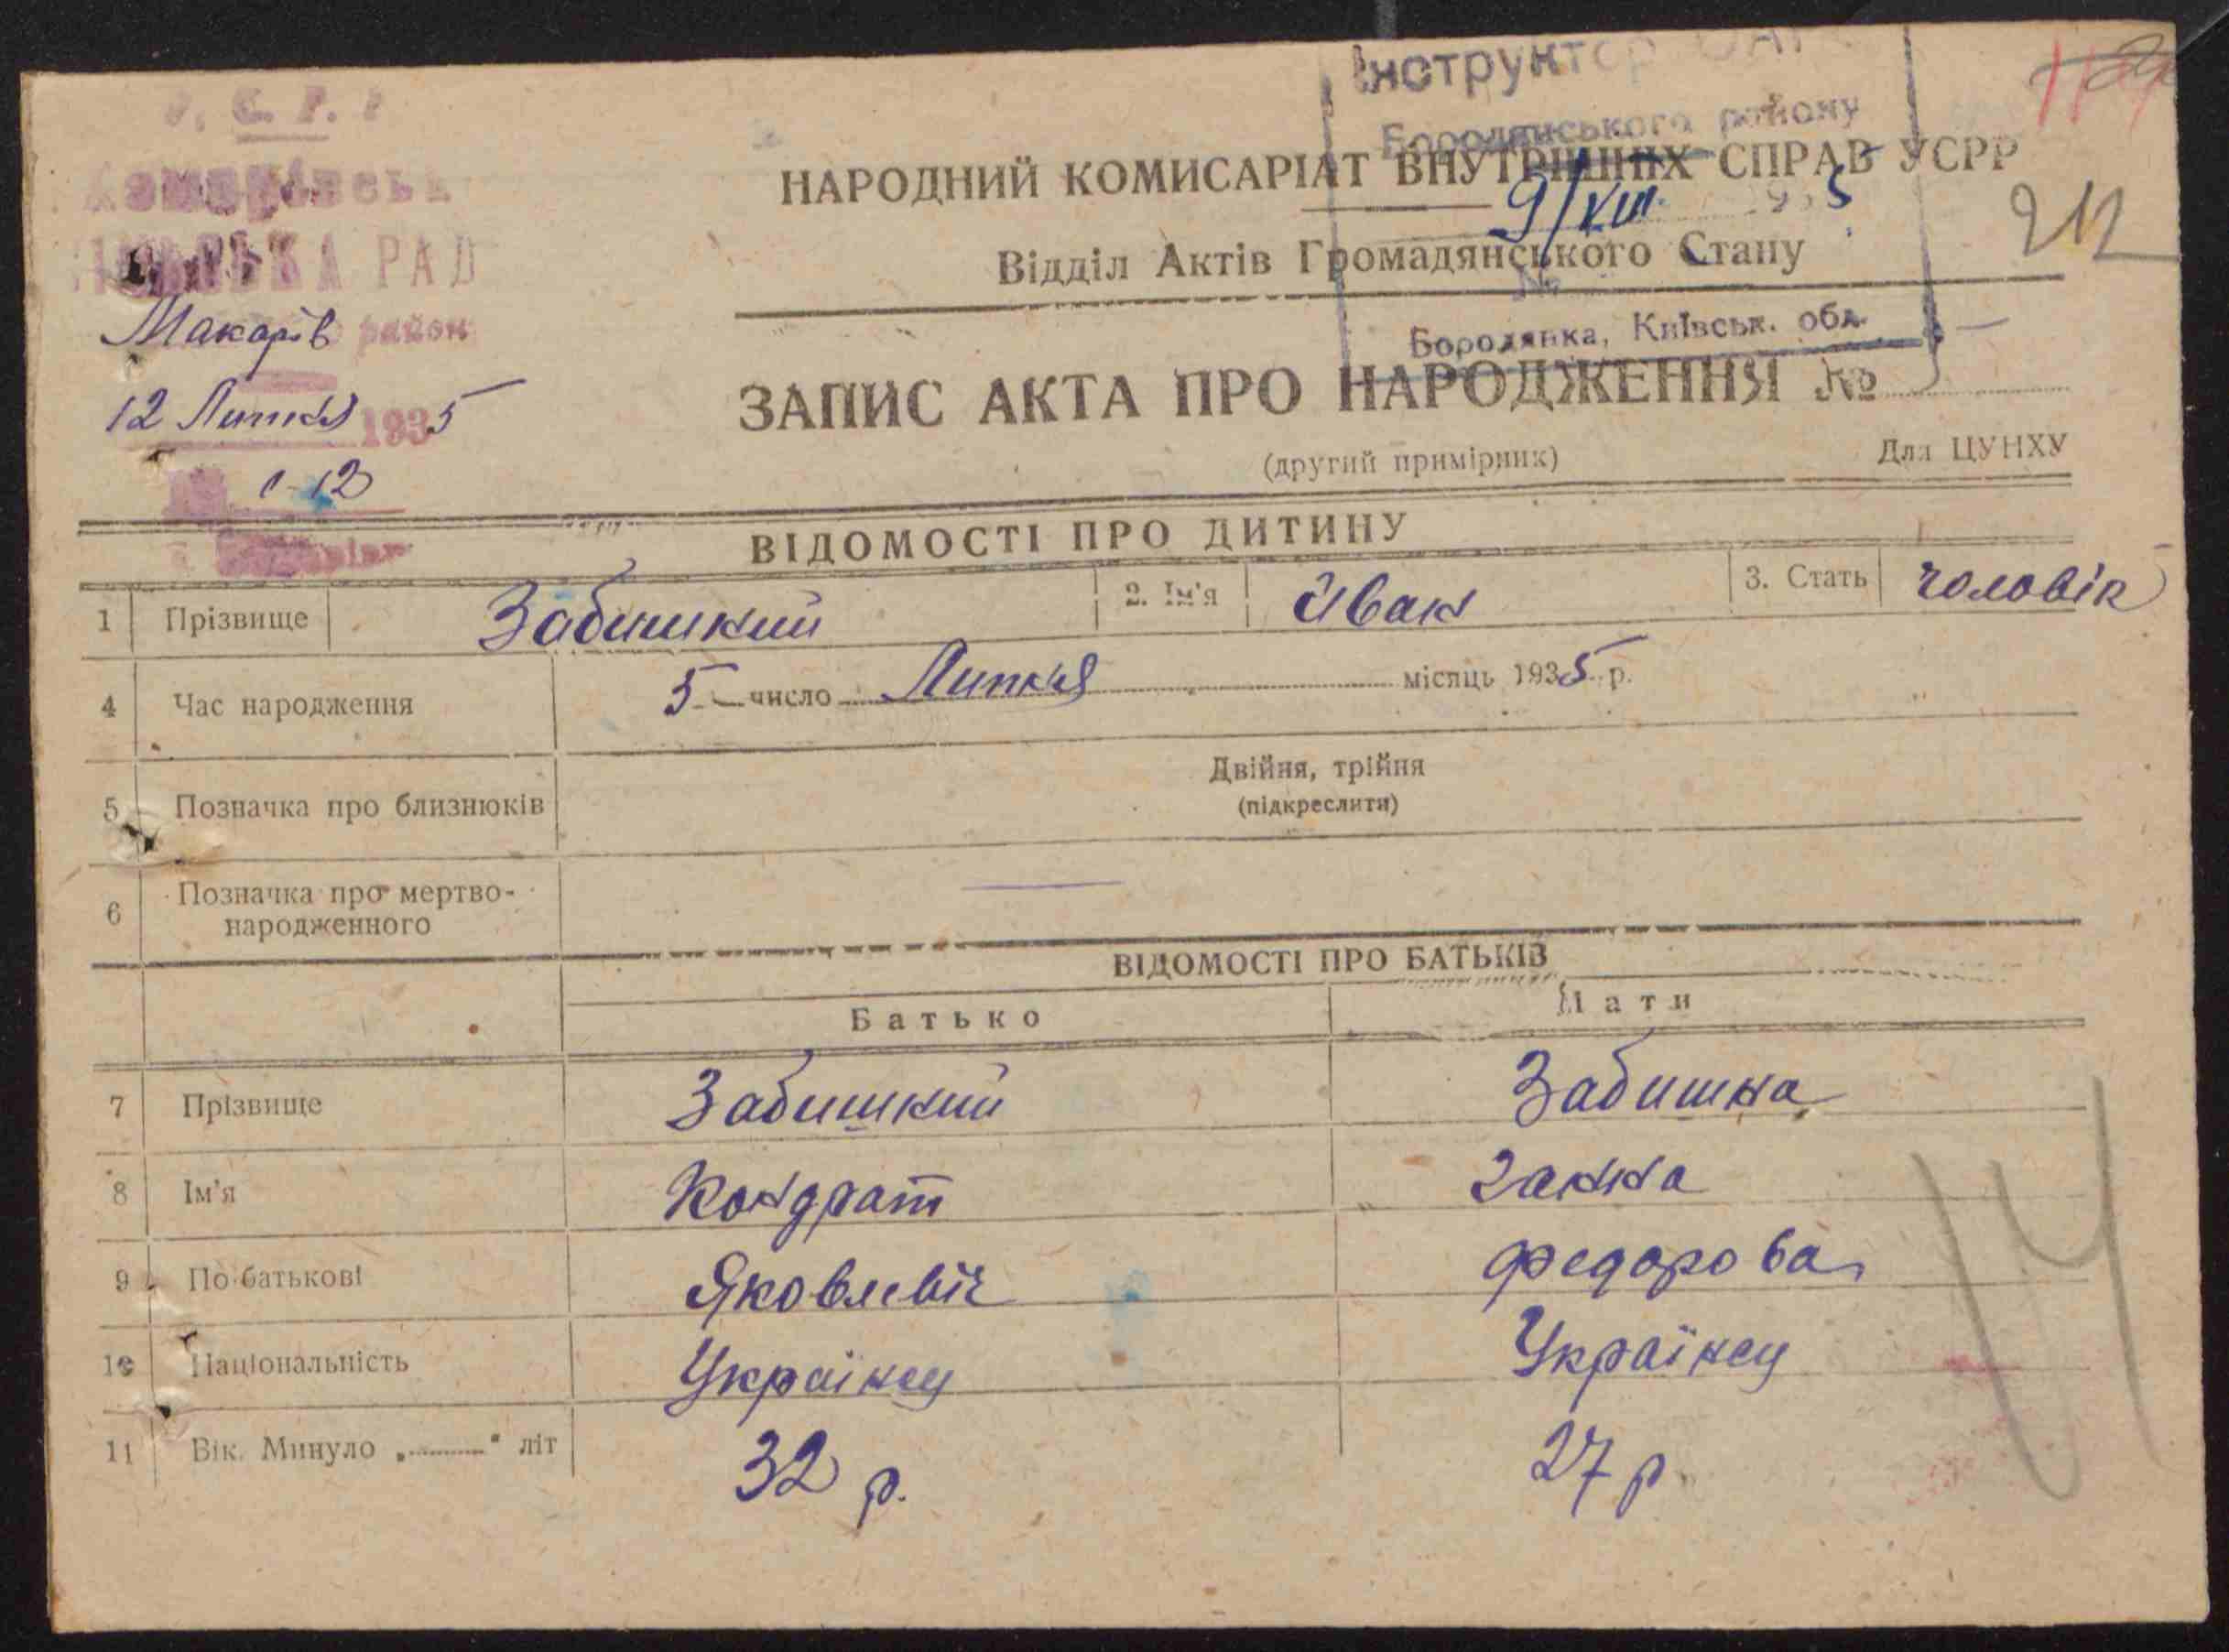 РАД
Макарів район
12 Липня 1935
Інструктор
Бородянського району
9/VIII 1935
Бородянка, Київськ. обл.
212
НАРОДНИЙ КОМИСАРІАТ ВНУТРІШНІХ СПРАВ УСРР
Відділ Актів Громадянського Стану
ЗАПИС АКТА ПРО НАРОДЖЕННЯ №
(другий примірник) Для ЦУНХУ
ВІДОМОСТІ ПРО ДИТИНУ
1 Прізвище Забишний 2. Ім'я Иван 3. Стать чоловік
4 Час народження 5 число Липня місяць 1935 р.
5 Позначка про близнюків Двійня, трійня
(підкреслити)
6 Позначка про мертво-
народженного
ВІДОМОСТІ ПРО БАТЬКІВ
Батько Мати
7 Прізвище Забишний Забишна
8 Ім'я Кондрат Ганна
9 По батькові Яковлевіч Федорова
10 Національність Українец Українец
11 Вік. Минуло „ “ літ 32 р. 27 р.
14